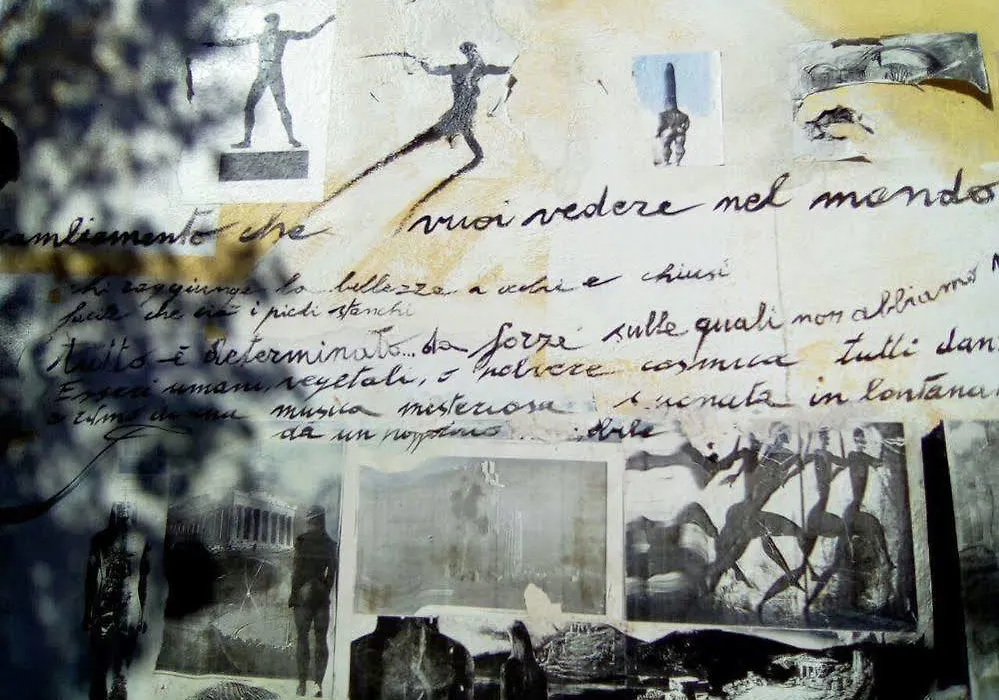 cambiamento che vuoi vedere nel mondo
chi raggiunge la bellezza a occhi chiusi
facile che i piedi stanchi
tutto è determinato... da forze sulle quali non abbiamo
Esseri umani, vegetali, o polvere cosmica tutti dan
a ritmo di una musica misteriosa in lontana
da un